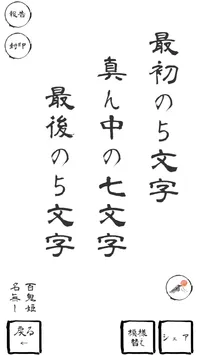 報告
封印
最初の５文字
真ん中の七文字
最後の５文字
百鬼姫
名無し
戻る
←
模様
替え
シェア